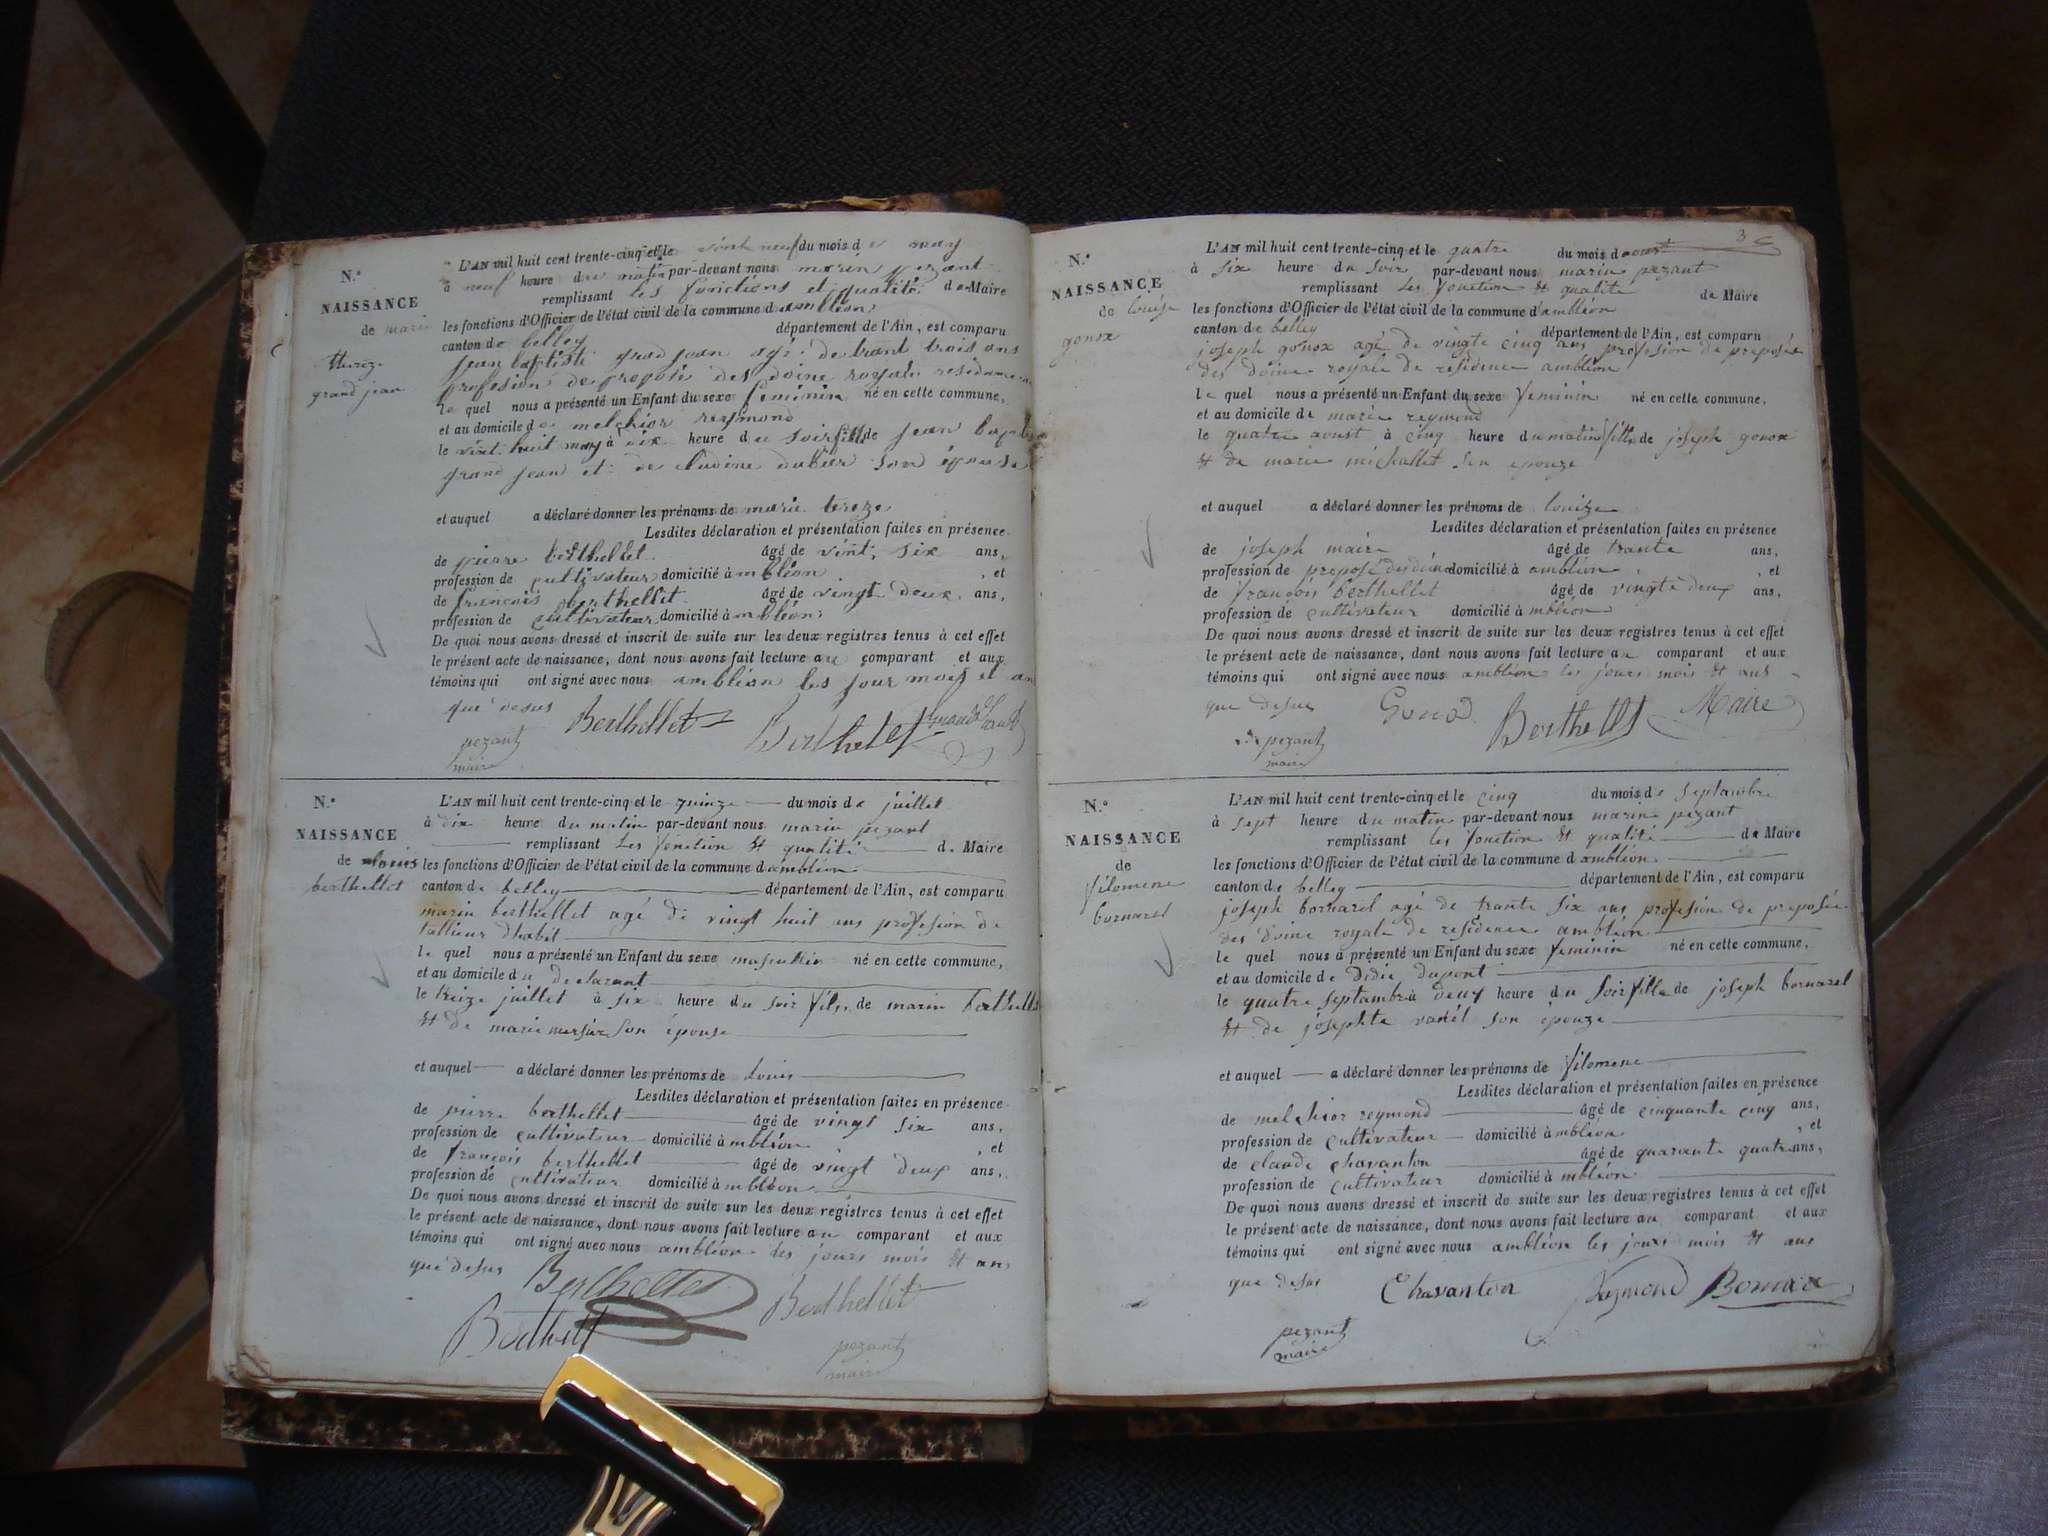 N.°
NAISSANCE
de marie
thereze
grand jean
L'AN mil huit cent trente-cinq et le vint neuf du mois de may
à neuf heure du matin par-devant nous marin pezant
remplissant les fonctions et qualité de Maire
les fonctions d'Officier de l'état civil de la commune d'ambléon
canton de belley département de l'Ain, est comparu
jean baptiste grad jean agé de trant trois ans
profesion de preposé des doine royale residance
le quel nous a présenté un Enfant du sexe feminin né en cette commune,
et au domicile de melchior reymond
le vint huit may à six heure du soir fille de jean baptiste
grand jean et de clodine dubeer son épouse
et auquel a déclaré donner les prénoms de marie tereze
Lesdites déclaration et présentation faites en présence
de pierre berthellet âgé de vint six ans,
profession de cultivateur domicilié à mbléon , et
de francois berthellet âgé de vingt deux ans,
profession de cultivateur domicilié à mbléon
De quoi nous avons dressé et inscrit de suite sur les deux registres tenus à cet effet
le présent acte de naissance, dont nous avons fait lecture au comparant et aux
témoins qui ont signé avec nous ambléon les jour mois et an
que desus Berthellet Berthelet
pezant
maire
N.°
NAISSANCE
de louis
berthellet
L'AN mil huit cent trente-cinq et le quinze du mois de juillet
à dix heure du matin par-devant nous marin pezant
remplissant les fonction et qualité de Maire
les fonctions d'Officier de l'état civil de la commune d'ambléon
canton de belley département de l'Ain, est comparu
marin berthellet agé de vingt huit ans profesion de
tallieur dhabit
le quel nous a présenté un Enfant du sexe masculin né en cette commune,
et au domicile du declarant
le treize juillet à six heure du soir fils de marin berthellet
et de marie mersier son épouse
et auquel a déclaré donner les prénoms de louis
Lesdites déclaration et présentation faites en présence
de pierre berthellet âgé de vingt six ans,
profession de cultivateur domicilié à mbléon , et
de françois berthellet âgé de vingt deux ans,
profession de cultivateur domicilié à mbléon
De quoi nous avons dressé et inscrit de suite sur les deux registres tenus à cet effet
le présent acte de naissance, dont nous avons fait lecture au comparant et aux
témoins qui ont signé avec nous ambléon les jours mois et ans
que desus Berthellet Berthellet
Berthellet
pezant
maire
3
N.°
NAISSANCE
de louise
gonox
L'AN mil huit cent trente-cinq et le quatre du mois d'aoust
à six heure du soir par-devant nous marin pezant
remplissant les fonction et qualité de Maire
les fonctions d'Officier de l'état civil de la commune d'ambléon
canton de belley département de l'Ain, est comparu
joseph gonox agé de vingte cinq ans profesion de preposée
des doine royale de residence ambléon
le quel nous a présenté un Enfant du sexe feminin né en cette commune,
et au domicile de marie reymond
le quatre aoust à cinq heure du matin fille de joseph gonox
et de marie michallet son epouze
et auquel a déclaré donner les prénoms de louize
Lesdites déclaration et présentation faites en présence
de joseph maire âgé de trante ans,
profession de preposé des doine domicilié à ambléon , et
de françois berthellet âgé de vingte deux ans,
profession de cultivateur domicilié à mbléon
De quoi nous avons dressé et inscrit de suite sur les deux registres tenus à cet effet
le présent acte de naissance, dont nous avons fait lecture au comparant et aux
témoins qui ont signé avec nous ambléon les jours mois et ans
que desus Gonod Berthellet Maire
pezant
maire
N.°
NAISSANCE
de
filomene
bornarel
L'AN mil huit cent trente-cinq et le cinq du mois de septambre
à sept heure du matin par-devant nous marin pezant
remplissant les fonction et qualité de Maire
les fonctions d'Officier de l'état civil de la commune d'ambléon
canton de belley département de l'Ain, est comparu
joseph bornarel agé de trante six ans profesion de preposée
des doine royale de residence ambléon
le quel nous a présenté un Enfant du sexe feminin né en cette commune,
et au domicile de didié dupont
le quatre septambre à deux heure du soir fille de joseph bornarel
et de josephte vanel son epouze
et auquel a déclaré donner les prénoms de filomene
Lesdites déclaration et présentation faites en présence
de melchior reymond âgé de cinquante cinq ans,
profession de cultivateur domicilié à mbléon , et
de claude chavanton âgé de quarante quatre ans,
profession de cultivateur domicilié à mbléon
De quoi nous avons dressé et inscrit de suite sur les deux registres tenus à cet effet
le présent acte de naissance, dont nous avons fait lecture au comparant et aux
témoins qui ont signé avec nous ambléon les jours mois et ans
que desus Chavanton Reymond
pezant
maire